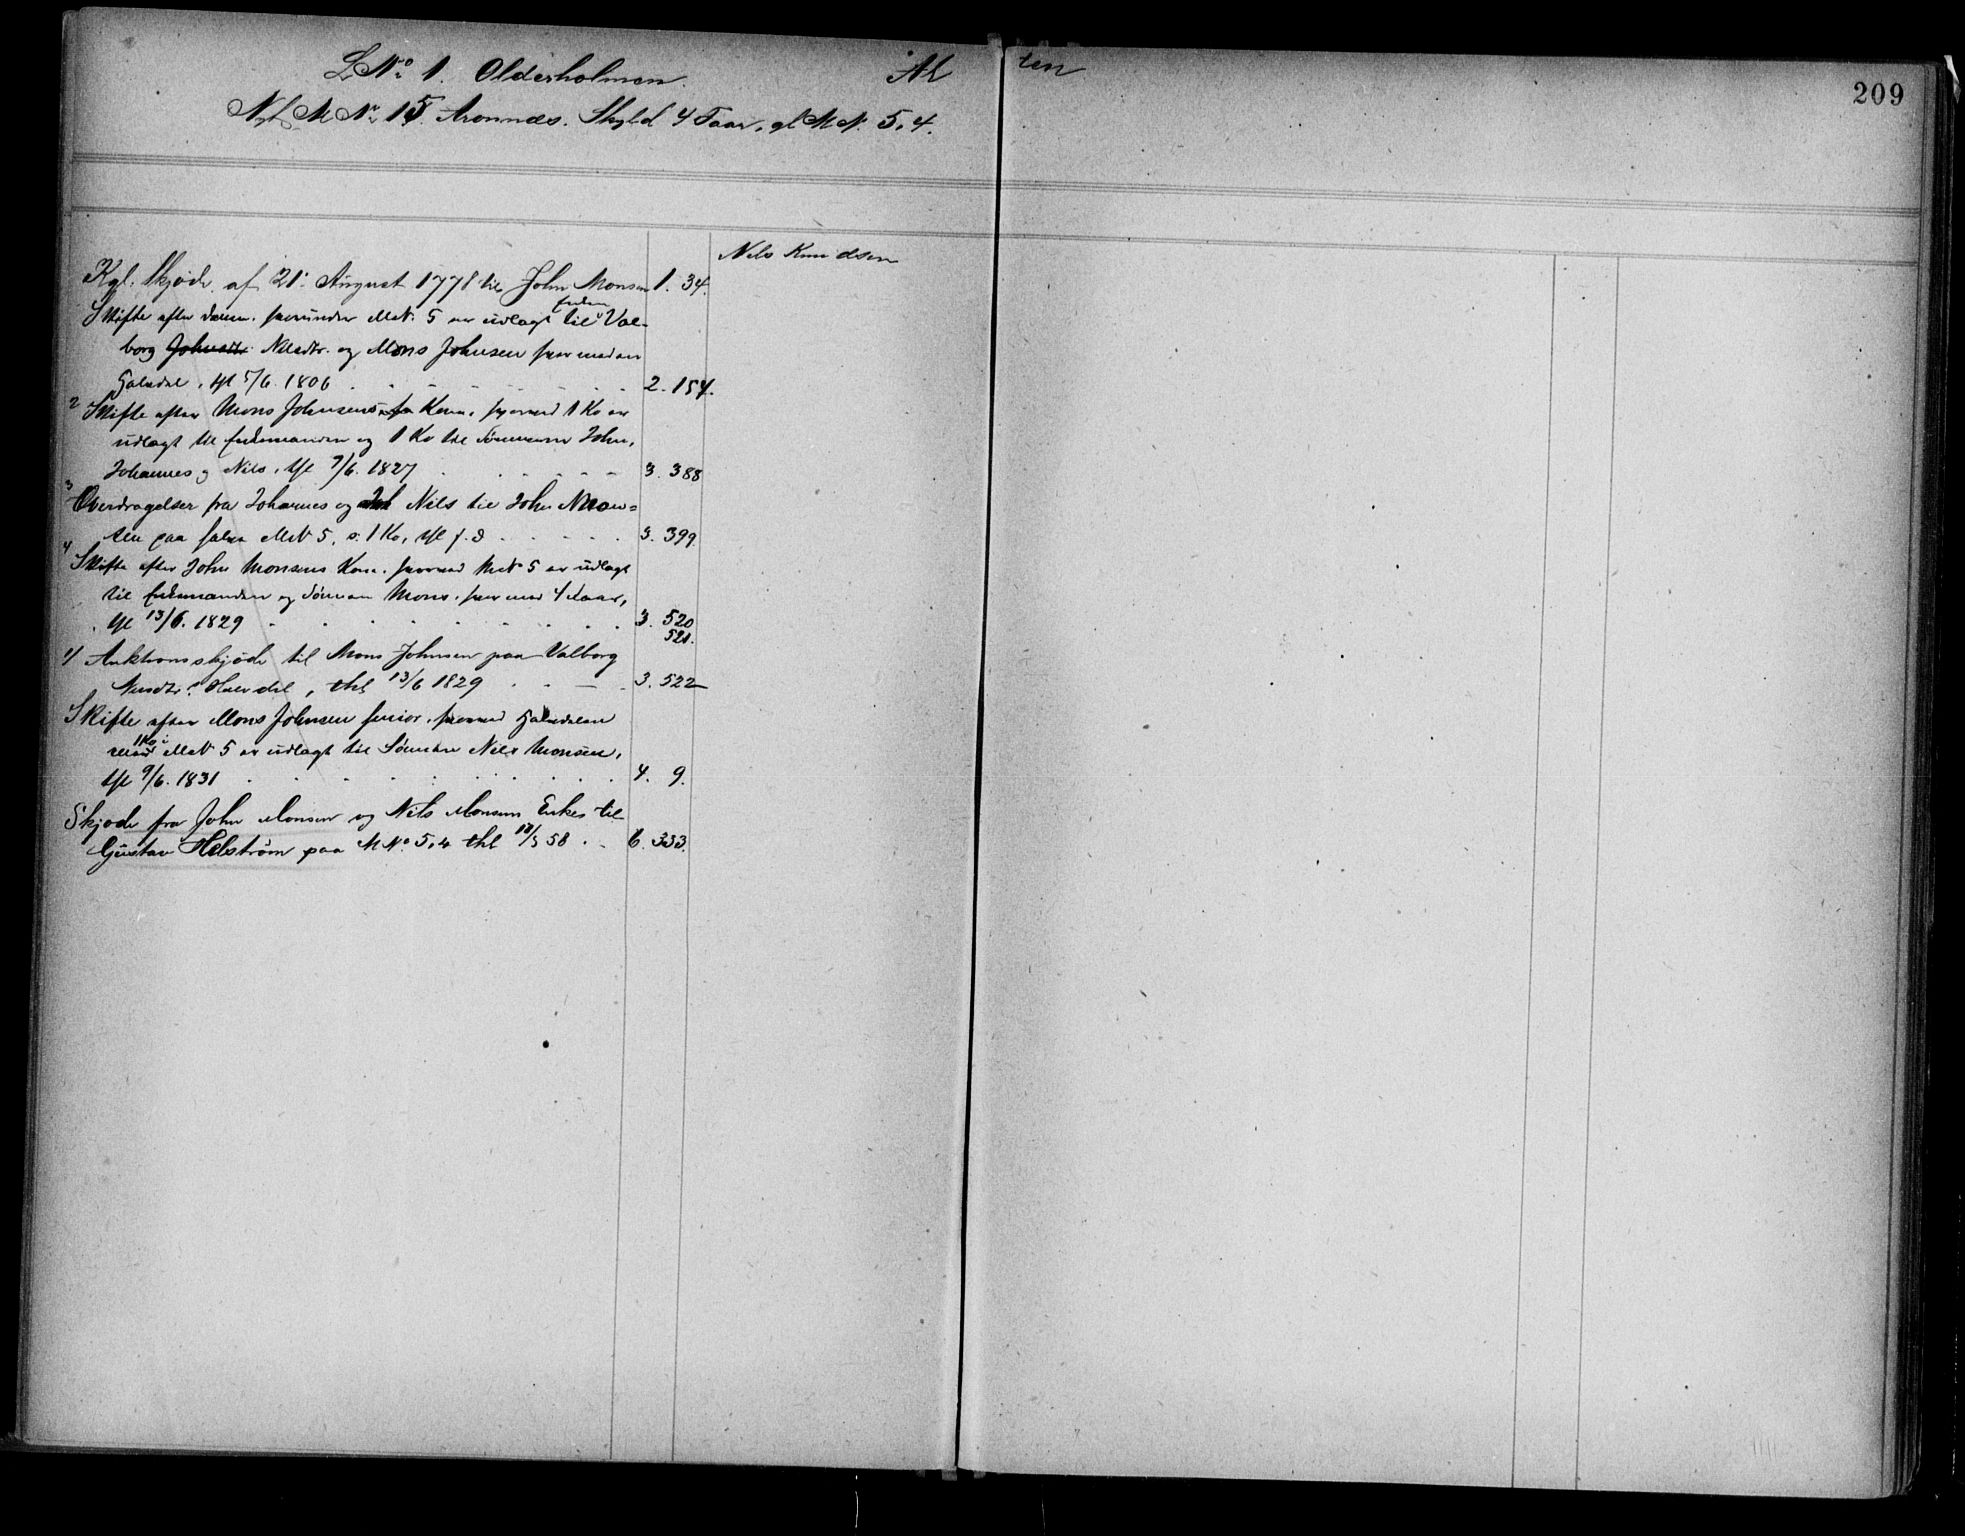 L.No. 1. Olderholmen. i Alten
209
Nyt M No. 15. Aronnæs. Skyld 4 Faar, gl M N. 5,4.
Nils Knudsen
Kgl. Skjøde af 21. August 1778 til John Monsen 1. 34.
Skifte efter denne. hvorunder MN. 5 er udlagt til Enken Val-
borg Johnsdtr. Nilsdtr. og Mons Johnsen hver med en
Halvdel, tgl 5/6. 1806 . . . . . . 2. 154.
2 Skifte efter Mons Johnsens Kone, hvorved 1 Ko er
udlagt til Enkemanden og 1 Ko til Sønnerne John,
Johannes og Nils, tgl 7/6. 1827 . . . . . 3. 388
3 Overdragelser fra Johannes og Nils til John
paa MN 5, s. 1 Ko, tgl s. d . . . . . 3. 399.
4 Skifte efter John Monsens Kone. hvorved MN 5 er udlagt
til Enkemanden og Sønnen Mons. hver med 4 Faar,
tgl 13/6. 1829 . . . . . . . . 3. 520
521.
1/ Auktionsskjøde til Mons Johnsen paa Valborg
Nilsdtr.s Halvdel, thl 13/6 1829 . . — . 3. 522
Skifte efter Mons Johnsen senior. hvorved Halvdelen
med 1 Ko i MN 5 er udlagt til Sønnen Nils Monsen,
tgl 9/6. 1831 . . . . . . . . 4. 9.
Skjøde fra John Monsen og Nils Monsens Enke til
Gustav Helström paa M No. 5,4 thl 18/3 58 . . 6. 333.